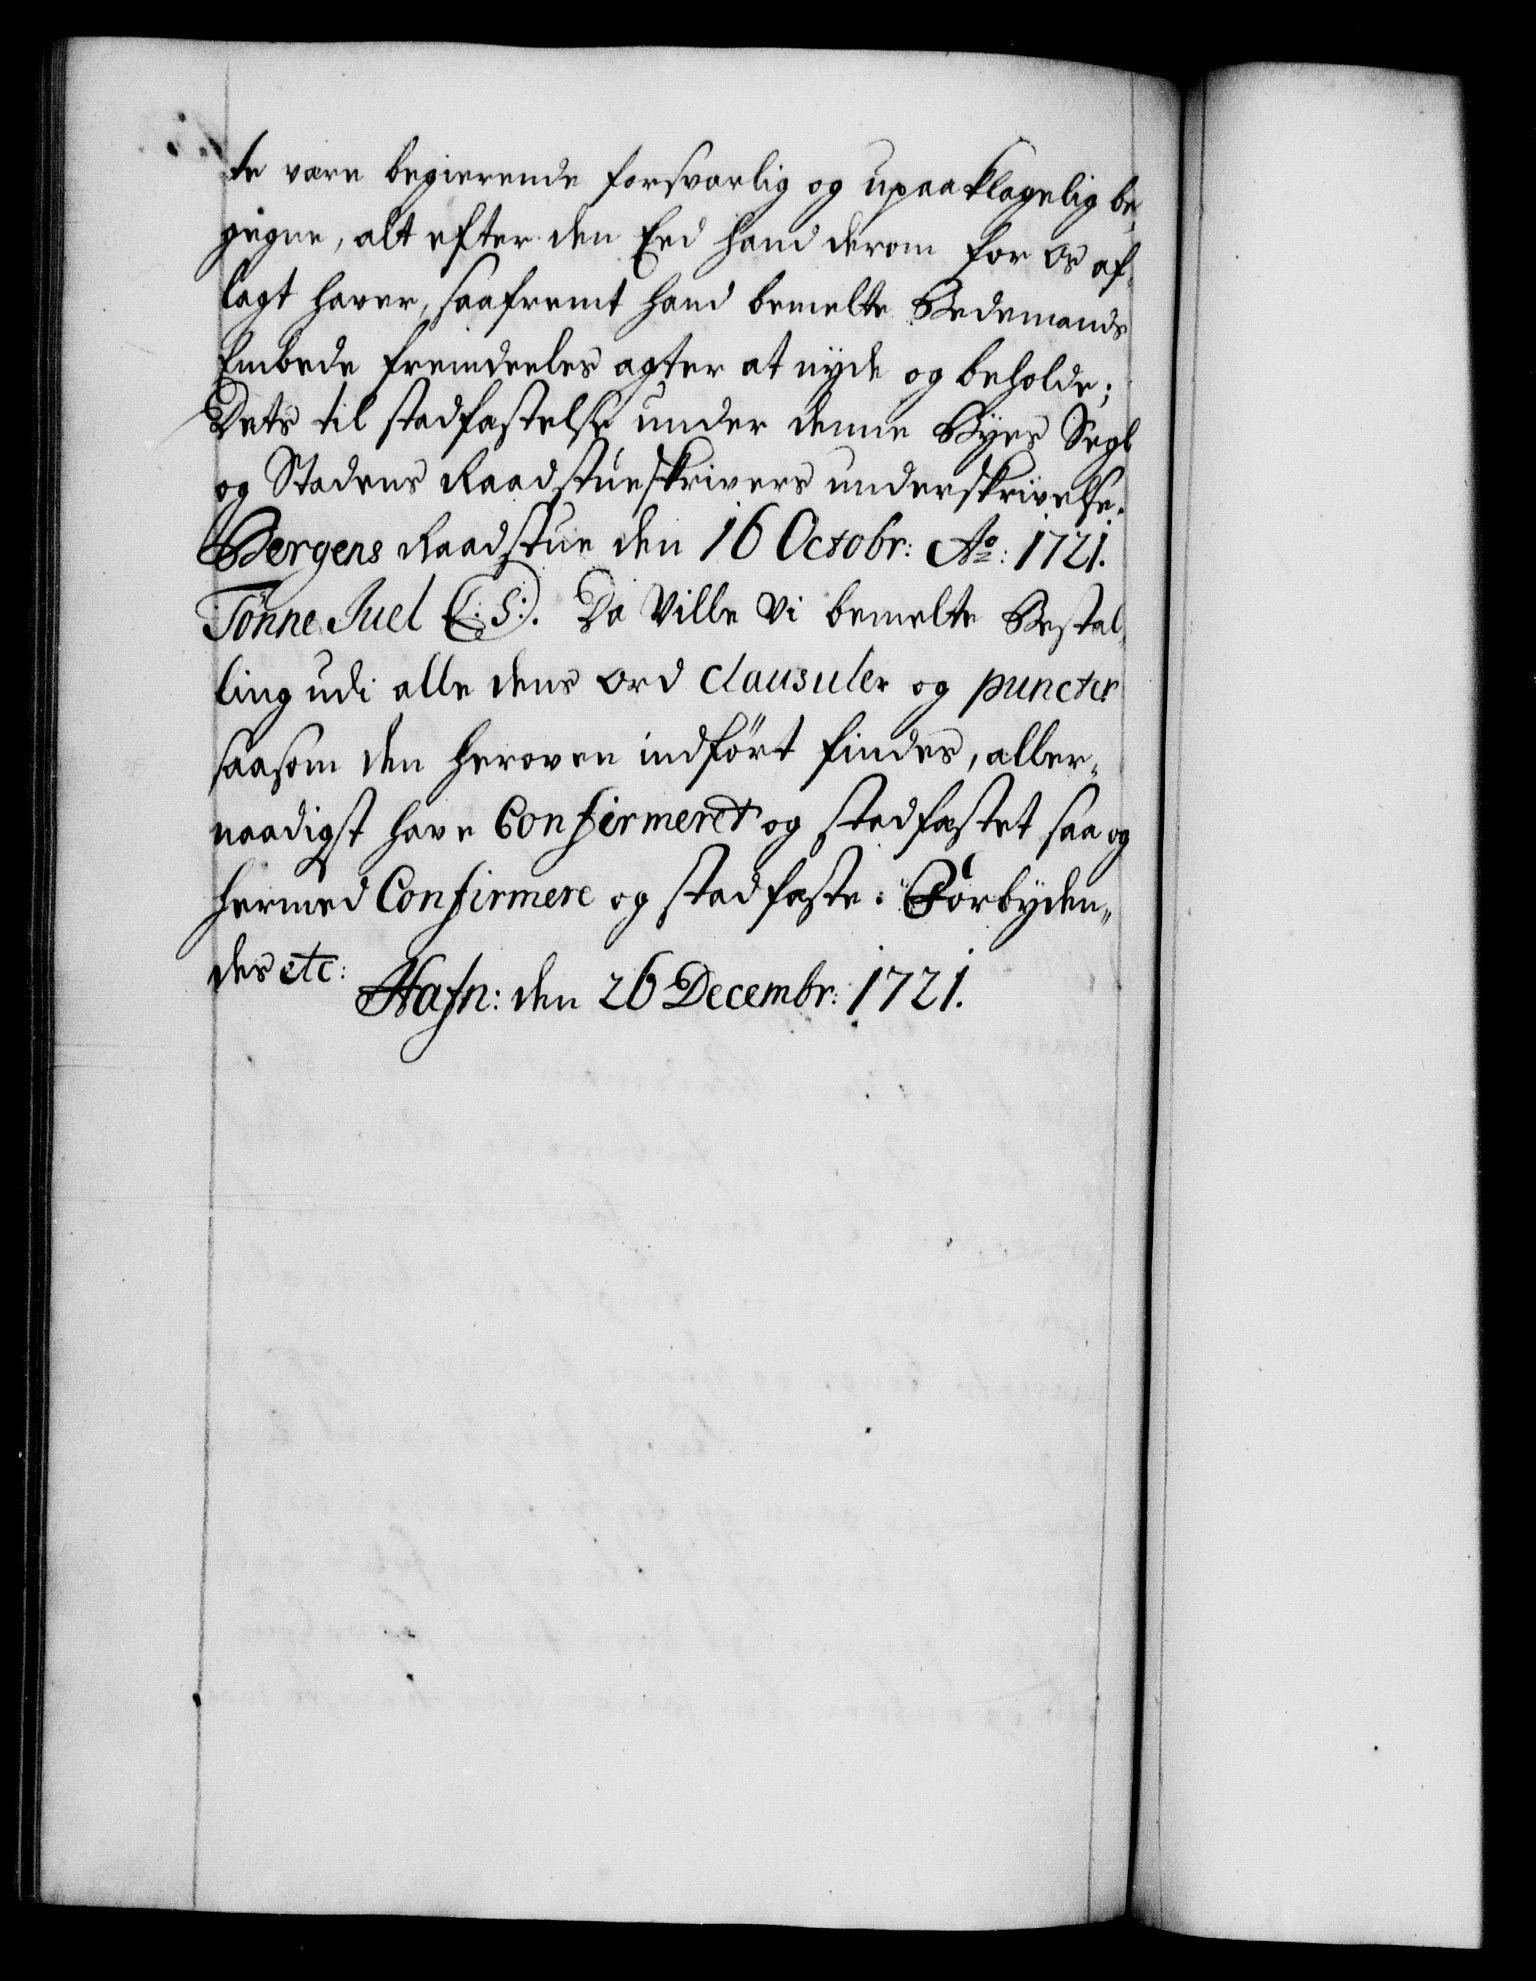 te være begierende forsvarlig og upaaklagelig be¸
giegne, alt efter den Eed hand derom for os af¸
lagt haver, saafremt hand bemelte Bedemands
Embede fremdeeles agter at nyde og beholde;
Dets til stadfæstelse under denne Byes Segl
og Stadens Raadstueskrivers underskrivelse.
Bergens Raadstue den 16 Octobr: Ao: 1721.
Tönne Juel (:S:). Da Ville Vi bemelte Bestal¸
ling udi alle dens ord clausuler og puncter
saasom den heroven indført findes, aller¸
naadigst have Confirmeret og stadfæstet saa og
hermed Confirmere og stadfæste: Forbyden¸
des etc: Hafn: den 26 Decembr: 1721.